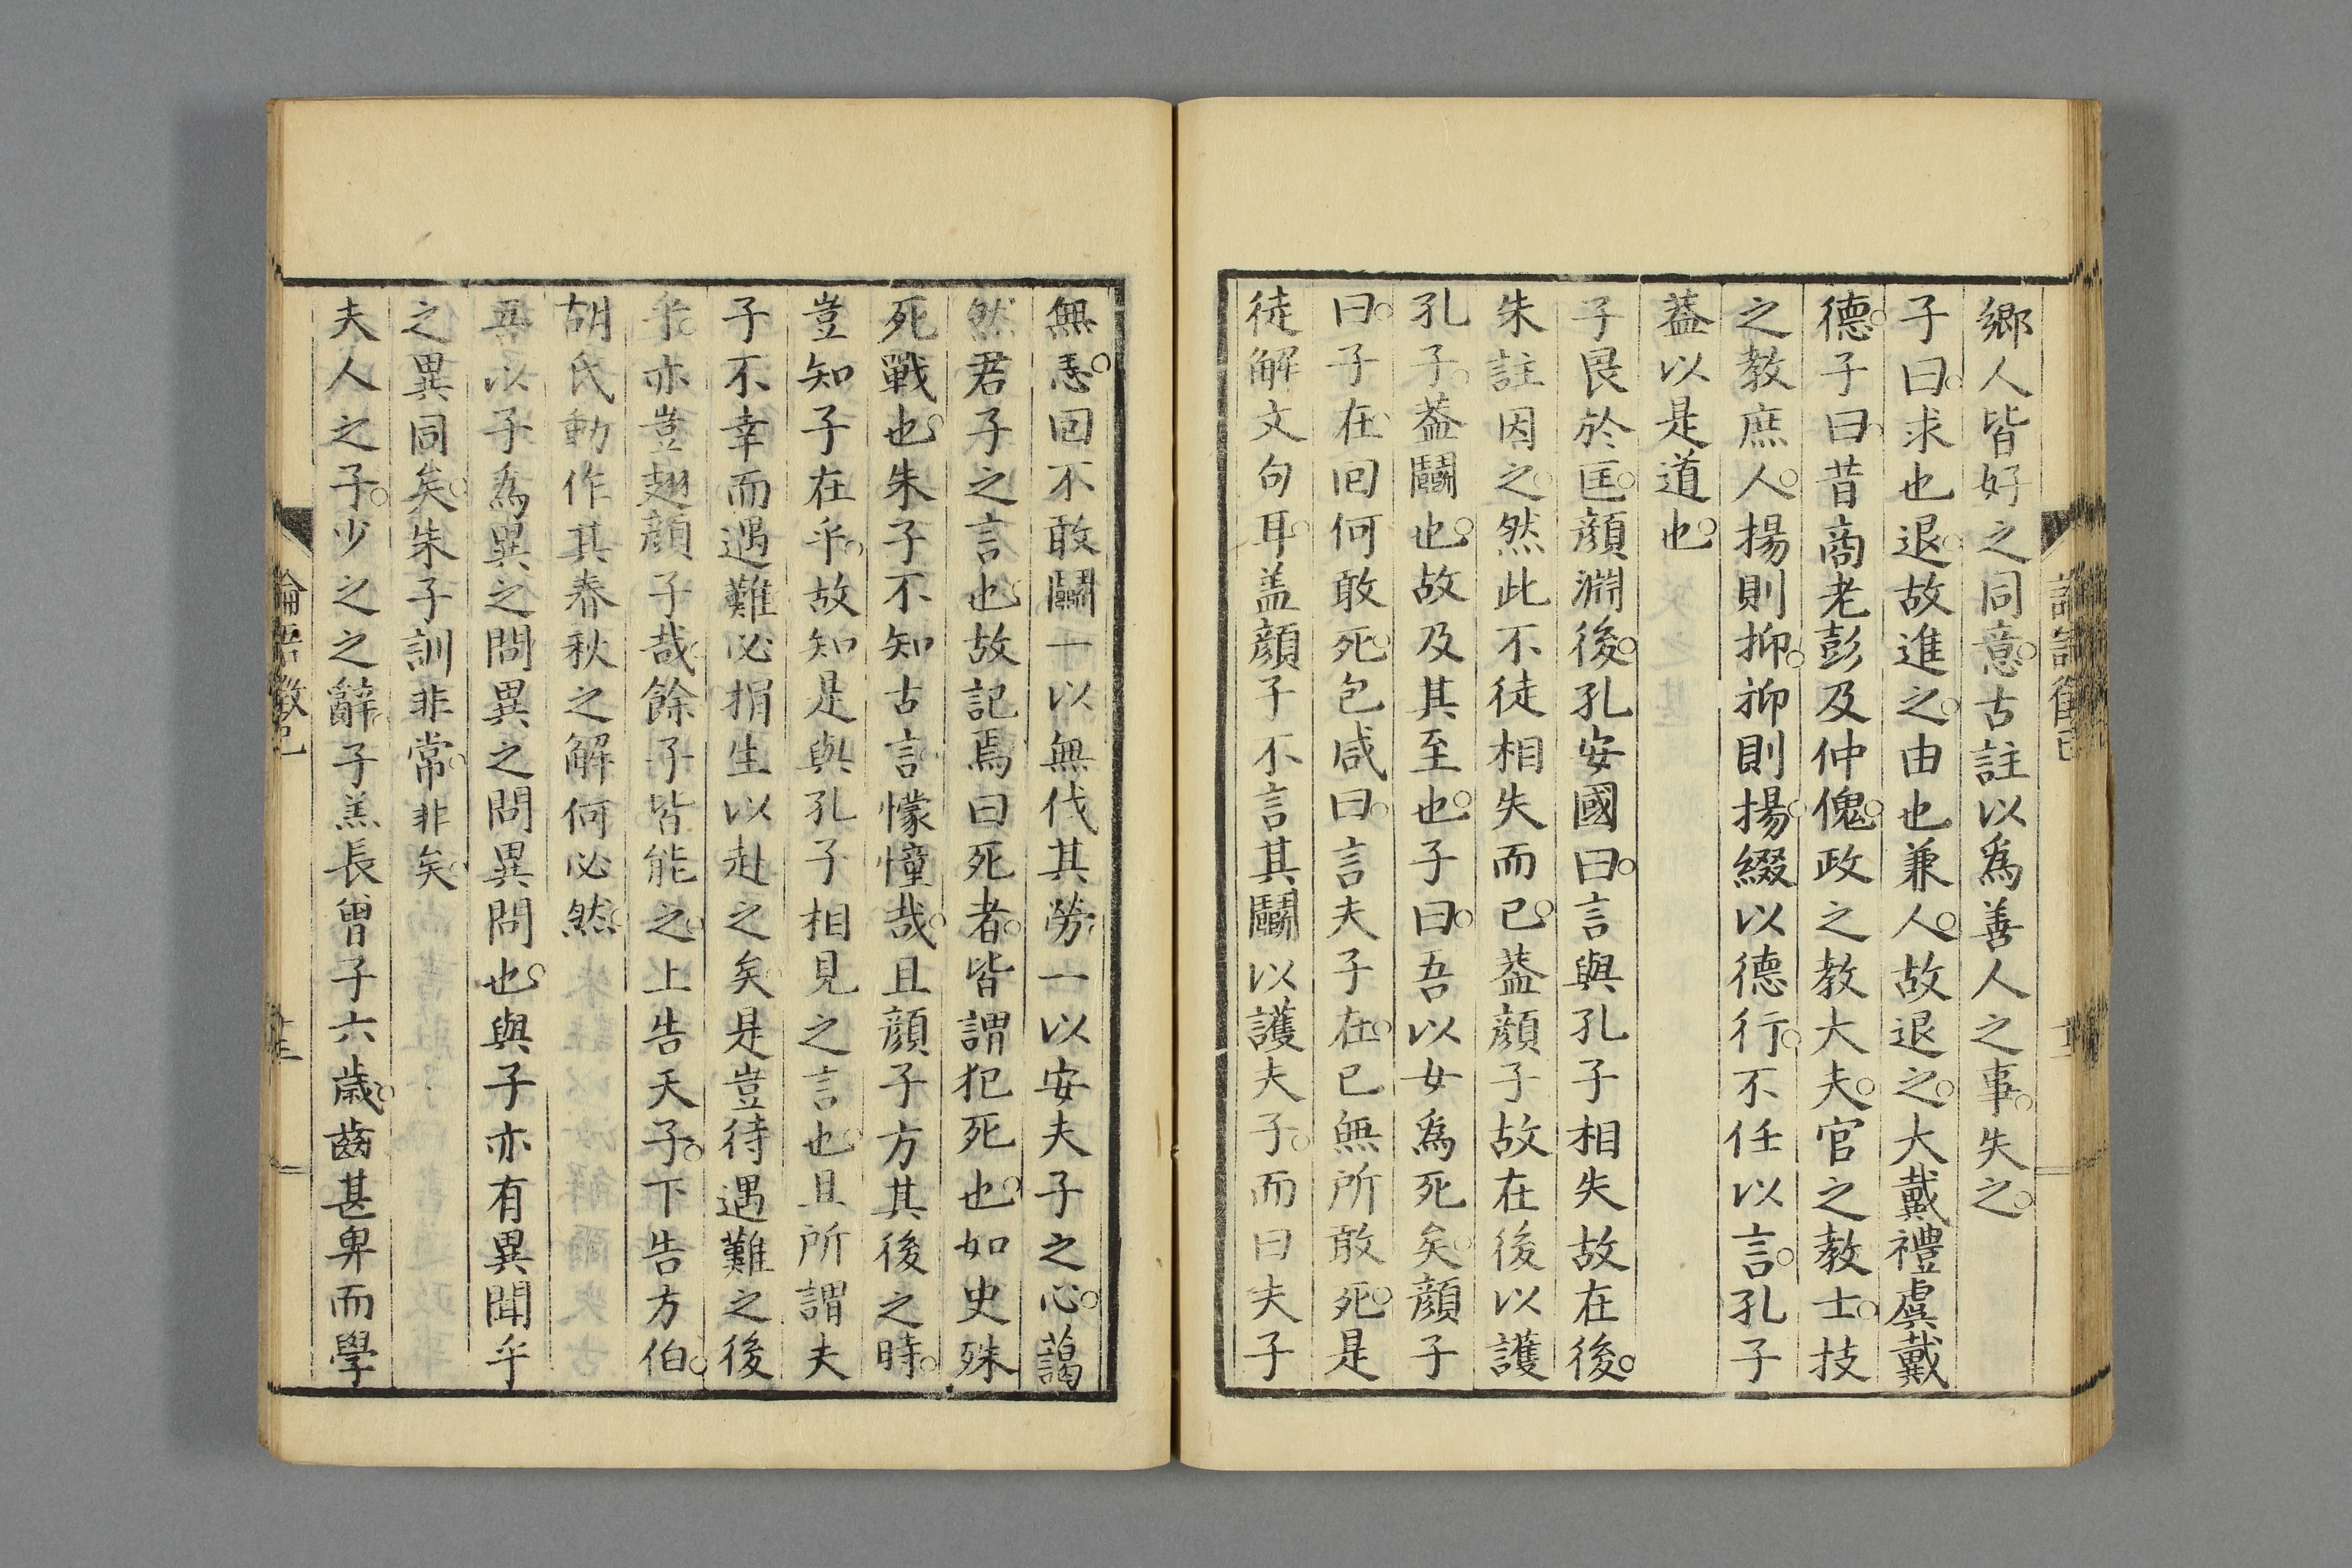 鄉人皆好之同意。古註以爲善人之事。失之。
子曰。求也退。故進之。由也兼人。故退之。大戴禮虞戴
德。子曰。昔商老彭及仲傀。政之教大夫。官之教士。技
之教庶人。揚則抑。抑則揚。綴以德行。不任以言。孔子
葢以是道也。
子畏於匡。顏淵後。孔安國曰。言與孔子相失故在後。
朱註因之。然此不徒相失而已。葢顏子故在後以護
孔子。葢鬭也。故及其至也。子曰。吾以女爲死矣。顏子
曰。子在。回何敢死。包咸曰。言夫子在。已無所敢死。是
徒解文句耳。盖顏子不言其鬭以護夫子。而曰夫子
無恙。回不敢鬭。一以無伐其勞。一以安夫子之心。藹
然君子之言也。故記焉。曰死者。皆謂犯死也。如史殊
死戰也。朱子不知古言。懞憧哉。且顏子方其後之時。
豈知子在乎。故知是與孔子相見之言也。且所謂夫
子不幸而遇難。必捐生以赴之矣。是豈待遇難之後
乎。亦豈翅顏子哉。餘子皆能之。上告天子。下告方伯。
胡氏動作其春秋之解。何必然。
吾以子爲異之問。異之問。異問也。與子亦有異聞乎
之異同矣。朱子訓非常。非矣。
夫人之子。少之之辭。子羔長曾子六歲。齒甚卑而學
論語徵己